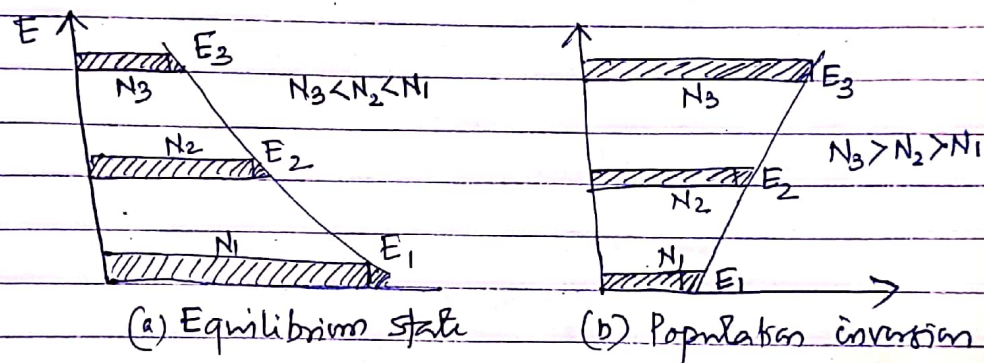 E
E3
N3
N3<N2<N1
N2
E2
N1
E1
(a) Equilibrium state
N3
E3
N3>N2>N1
E2
N2
N1
E1
(b) Population inversion